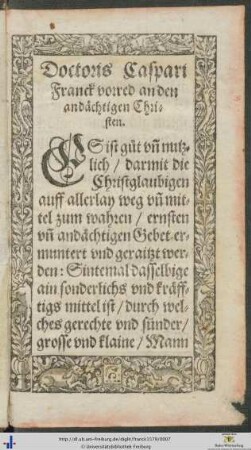 Doctoris Caspari
Franck vorred an den
andächtigen Chri-
sten.
ES ist gůt vñ nutz-
lich / darmit die
Christglaubigen
auff allerlay weg vñ mit-
tel zum wahren / ernsten
vñ andächtigen Gebet er-
muntert vnd geraitzt wer-
den: Sintemal dasselbige
ain sonderlichs vnd kräff-
tigs mittel ist / durch wel-
ches gerechte vnd sünder /
grosse vnd klaine / Mann
http://dl.ub.uni-freiburg.de/diglit/franck1576/0007
© Universitätsbibliothek Freiburg